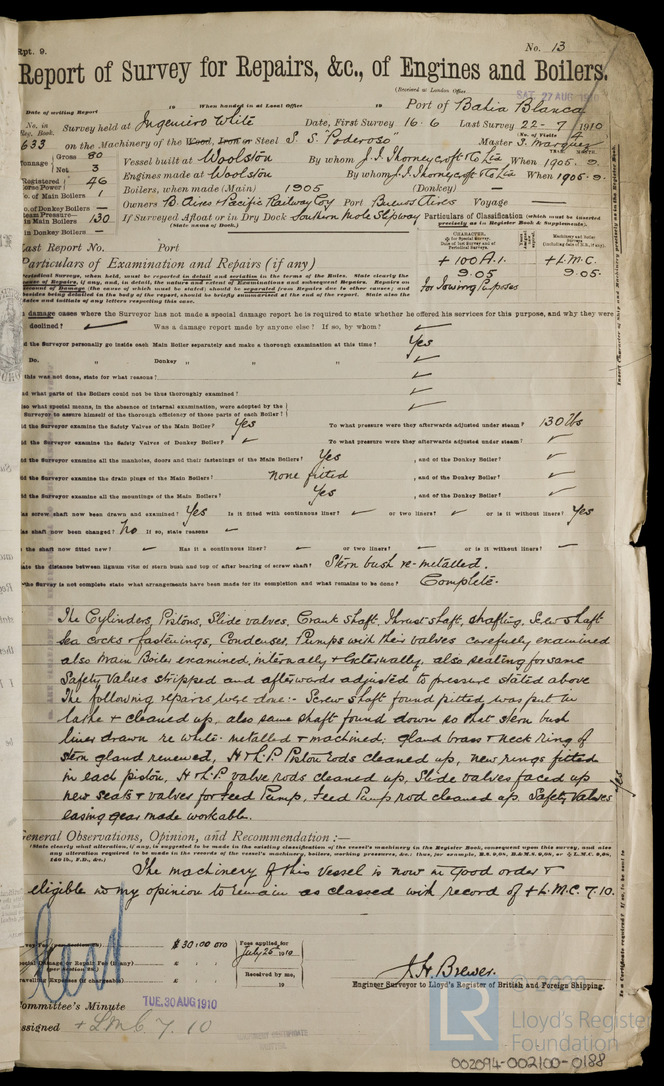 Rpt. 9.
No. 13
Report of Survey for Repairs, &c., of Engines and Boilers.
(Received at London Office
SAT. 27 AUG 1910
Date of writing Report 19 When handed in at Local Office 19 Port of Bahia Blanca
No. in Reg. Book. Survey held at Ingeniero White Date, First Survey 16-6 Last Survey 22-7 1910
(No. of Visits 4
633 on the Machinery of the Wood, Iron or Steel S. S. "Poderoso" Master J. Marquez
Tonnage Gross 80 Vessel built at Woolston By whom J. I. Thorneycroft & Co Ltd When 1905. 9.
Net 3 Engines made at Woolston By whom J. I. Thorneycroft & Co Ltd When 1905. 9.
Registered Horse Power 46 Boilers, when made (Main) 1905 (Donkey) —
No. of Main Boilers 1
No. of Donkey Boilers — Owners B. Aires & Pacific Railway Coy Port Buenos Aires Voyage —
Steam Pressure in Main Boilers 130 If Surveyed Afloat or in Dry Dock Southern Mole Slipway Particulars of Classification (which must be inserted precisely as in Register Book & Supplements).
(State name of Dock.)
in Donkey Boilers —
Last Report No. Port
Particulars of Examination and Repairs (if any)
+ 100 A.1. + L.M.C.
9.05 9.05
for Towing Purposes
damage cases where the Surveyor has not made a special damage report he is required to state whether he offered his services for this purpose, and why they were
declined? ✓ Was a damage report made by anyone else? If so, by whom? ✓
Did the Surveyor personally go inside each Main Boiler separately and make a thorough examination at this time? Yes
Do. " Donkey " " " ✓
this was not done, state for what reasons? ✓
what parts of the Boilers could not be thus thoroughly examined? ✓
what special means, in the absence of internal examination, were adopted by the
Surveyor to assure himself of the thorough efficiency of those parts of each Boiler? ✓
Did the Surveyor examine the Safety Valves of the Main Boiler? Yes To what pressure were they afterwards adjusted under steam? 130 lbs
Did the Surveyor examine the Safety Valves of Donkey Boiler? ✓ To what pressure were they afterwards adjusted under steam? ✓
Did the Surveyor examine all the manholes, doors and their fastenings of the Main Boilers? Yes , and of the Donkey Boiler? ✓
Did the Surveyor examine the drain plugs of the Main Boilers? none fitted , and of the Donkey Boiler? ✓
Did the Surveyor examine all the mountings of the Main Boilers? Yes , and of the Donkey Boiler? ✓
Has screw shaft now been drawn and examined? Yes Is it fitted with continuous liner? ✓ or two liners? ✓ or is it without liners? Yes
Has shaft now been changed? No If so, state reasons ✓
Is the shaft now fitted new? ✓ Has it a continuous liner? ✓ or two liners? ✓ or is it without liners? ✓
State the distance between lignum vitæ of stern bush and top of after bearing of screw shaft? Stern bush re-metalled.
If the Survey is not complete state what arrangements have been made for its completion and what remains to be done? Complete.
The Cylinders, Pistons, Slide valves, Crank shaft, Thrust shaft, shafting, Screw shaft
Sea cocks & fastenings, Condenser, Pumps with their valves carefully examined
also Main Boiler examined, internally & externally, also seating for same
Safety Valves stripped and afterwards adjusted to pressure stated above
The following repairs were done:- Screw shaft found pitted was put in
lathe & cleaned up, also same shaft found down so that stern bush
liner drawn re white-metalled & machined: gland brass & neck ring of
stern gland renewed, H & L.P. Piston rods cleaned up, new rings fitted
in each piston, H & L.P valve rods cleaned up, Slide valves faced up
new seats & valves for Feed Pump, Feed Pump rod cleaned up. Safety Valves
easing gear made workable.
General Observations, Opinion, and Recommendation :—
(State clearly what alteration, if any, is suggested to be made in the existing classification of the vessel's machinery in the Register Book, consequent upon this survey, and also
any alteration required to be made in the records of the vessel's machinery, boilers, working pressures, &c.: thus, for example, B.S. 9,09, B.&M.S. 9,09, or + L.M.C. 9,09,
140 lb., F.D., &c.)
The machinery of this Vessel is now in good order &
eligible in my opinion to remain as classed with record of + L.M.C. 7.10.
£ 30:00 oro Fees applied for
July 26th 1910
Special Damage or Repair Fee (if any) £ : :
(per Section 28.)
Travelling Expenses (if chargeable) £ : : Received by me,
19
J. H. Brewer.
Engineer Surveyor to Lloyd's Register of British and Foreign Shipping.
Committee's Minute TUE. 30 AUG 1910
Assigned + LMC 7. 10
© 2020
LR
Lloyd's Register
Foundation
002094-002100-0188